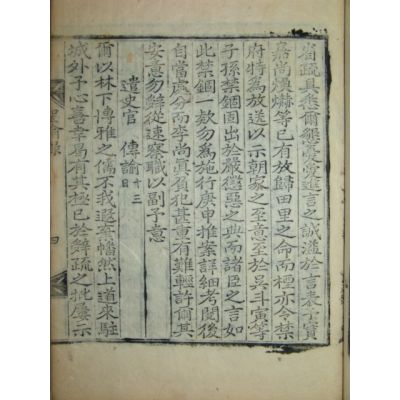 省疏具悉爾縷縷憂愛進言之誠溢於言表予實
嘉尚煥爀等已有放歸田里之命而柟亦令禁
府特為放送以示朝家之至意至於吳斗寅等
子孫禁錮固出於嚴懲惡之典而諸臣之言如
此禁錮一款勿為施行庚申推案詳細考閱後
自當處分而李尚真負犯甚重有難輕許爾其
安意勿辭從速察職以副予意
遣史官傳諭十三日
爾以林下博雅之儒不我遐棄幡然上道來駐
城外予心喜幸曷有其極已於辭疏之批屢示
四